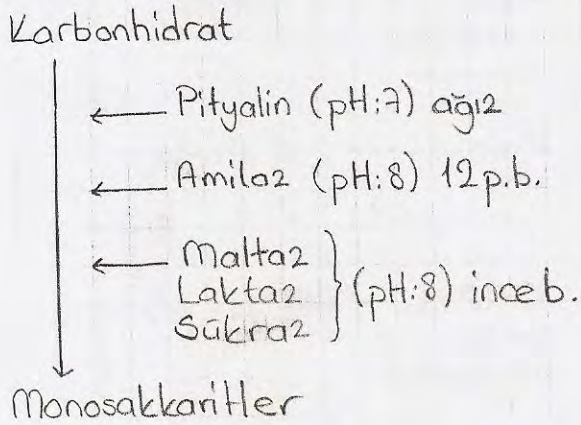 Karbonhidrat
Pityalin (pH:7) ağız
Amilaz (pH:8) 12 p.b.
Maltaz
Laktaz (pH:8) ince b.
Sükraz
Monosakkaritler